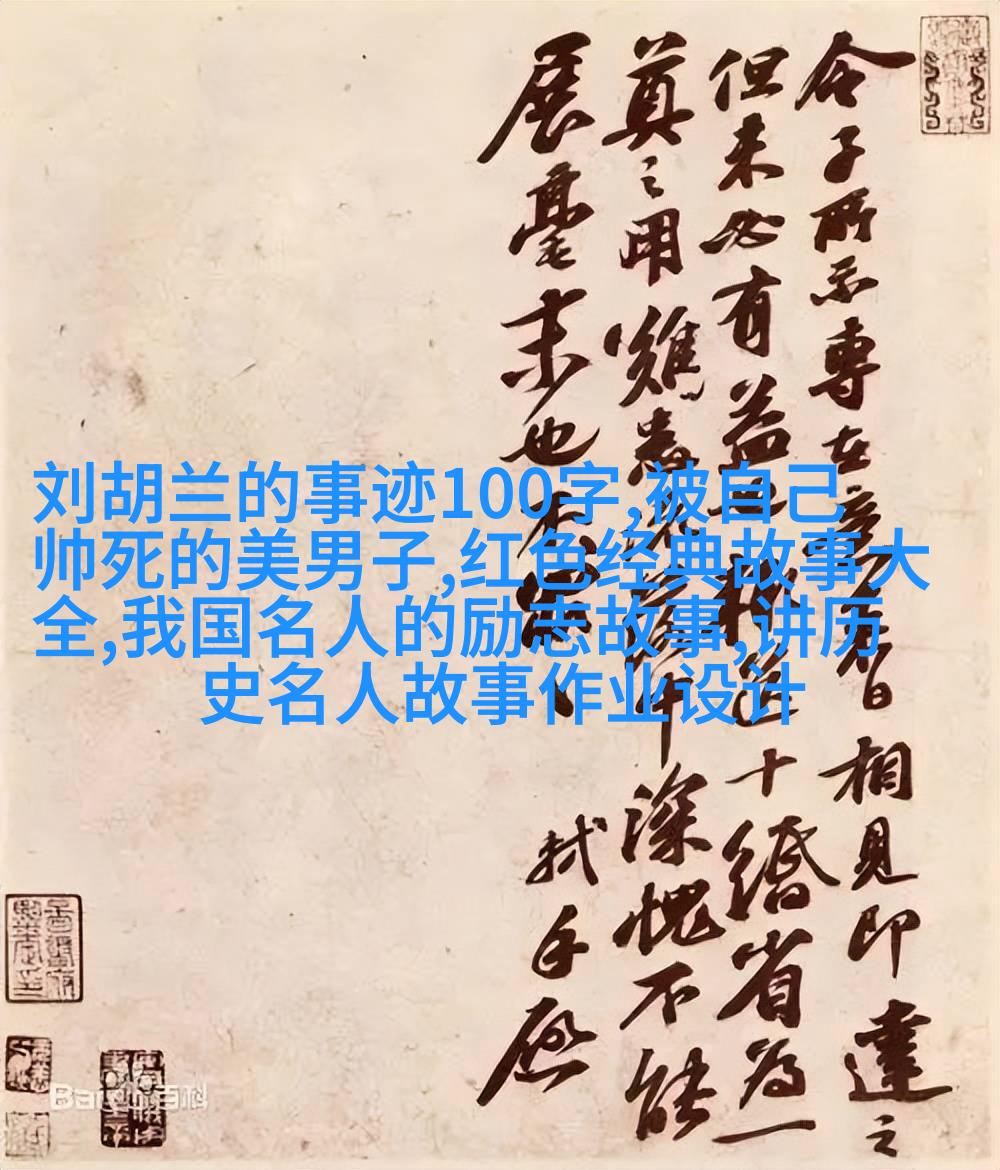 令子所示專在
相見即達之
但未必有益
十緡省為一
尊之用雖
深愧不能
展毫末也
軾手啟
刘胡兰的事迹100字,被自己
帅死的美男子,红色经典故事大
全,我国名人的励志故事,讲历
史名人故事作业设计
Baidu百科